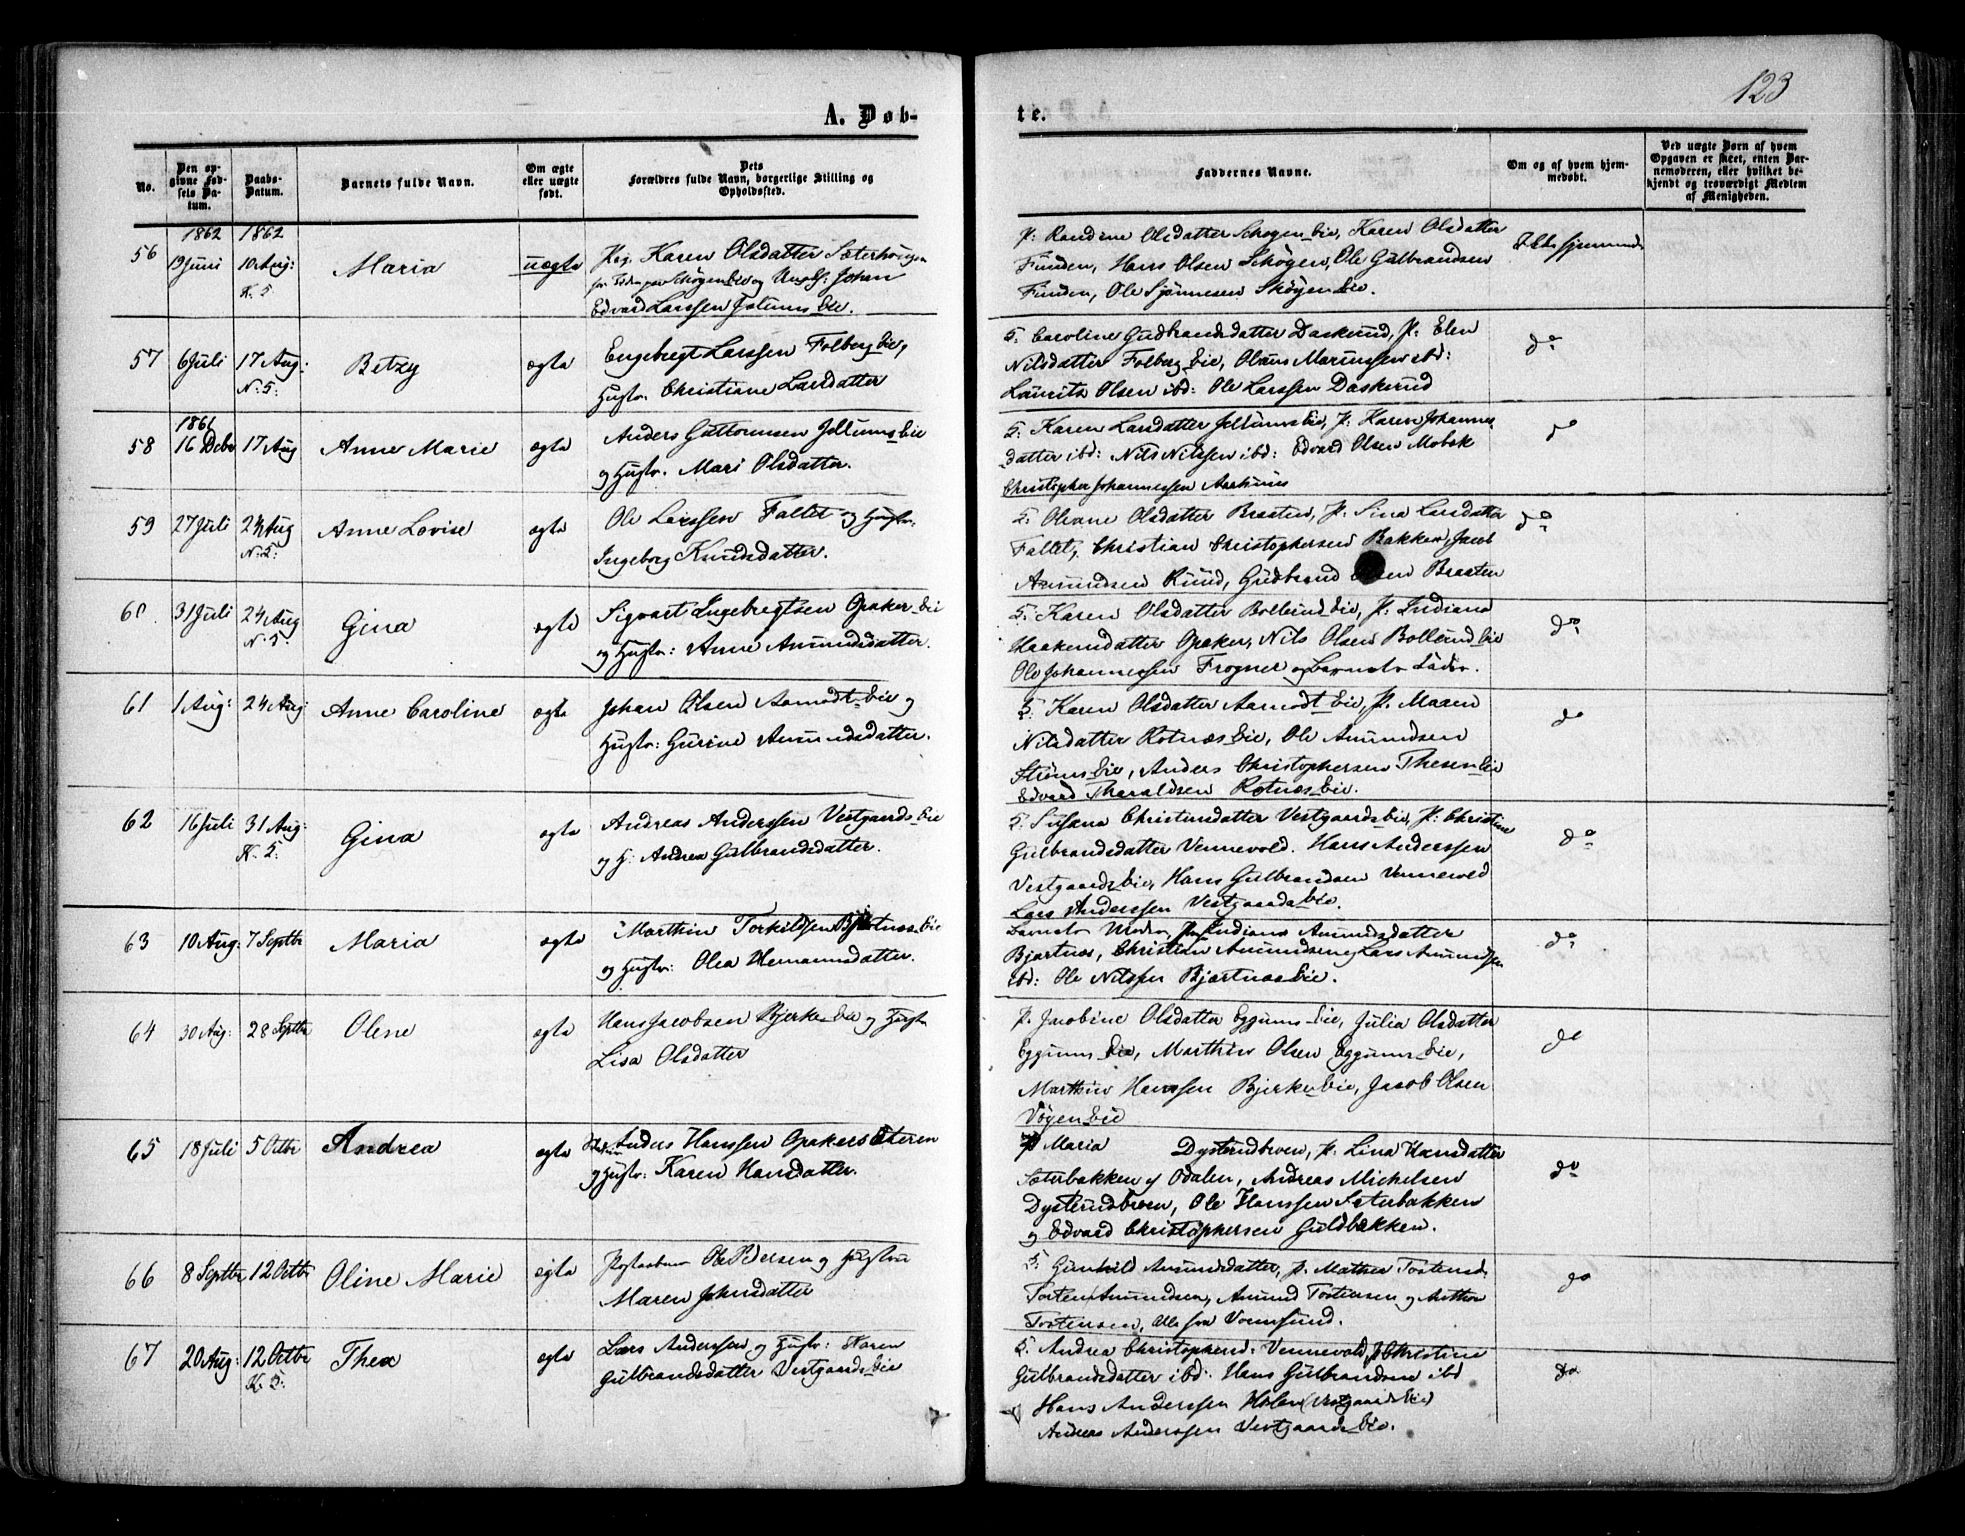 123
A. Døb-
te.
No.
Den op-
givne Fød-
sels Da-
tum.
Daabs-
Datum.
Barnets fulde Navn.
Om ægte
eller uægte
født.
Dets
Forældres fulde Navn, borgerlige Stilling og
Opholdssted.
Faddernes Navne.
Om og af hvem hjem-
medøbt.
Ved uægte Børn af hvem
Opgaven er skeet, enten Bar-
nemoderen, eller hvilket be-
kjendt og troværdigt Medlem
af Menigheden.
56
1862
19 Juni
1862
10 Aug:
K. 5.
Maria
uægte
Pig. Karen Olsdatter
og Ungk: Johan
Edvard Larssen Jølums Eie.
P: Randine Olsdatter Skøgen Eie, Karen Olsdatter
Funden, Hans Olsen Skøgen, Ole Gulbrandsen
Funden, Ole Skøyen Eie.
Ikke hjemmed
57
6 Juli
17 Aug:
N: 5:
Betzy
ægte
Engebregt Larssen Folberg Eie,
Hustr. Christiane Larsdatter
G: Caroline Gudbrandsdatter Daskerud, P: Elen
Nilsdatter Folberg Eie, Olaus Marinssen ibd:
Lauritz Olsen ibd: Ole Larssen Daskerud
do
58
1861
16 Debr
17 Aug
Anne Marie
ægte
Anders Guttormsen Jølums Eie
og Hustr. Mari Olsdatter.
G: Karen Larsdatter Jølums Eie, P: Karen Johannes
datter ibd: Nils Nilssen ibd: Edvard Olsen Mobæk
Christopher Johannessen Aarhuus
do
59
27 Juli
24 Aug
N. 5.
Anne Lovise
ægte
Ole Larssen Fallet og Hustr:
Ingeborg Knudsdatter.
G: Oleane Olsdatter Braaten, P: Sina Larsdatter
Fallet, Christian Christophersen Bakken, Jacob
Amundsen Ruud, Gudbrand Braaten
do
60.
31 Juli
24 Aug
N. 5.
Gina
ægte
Sigvart Ingebregtsen Opaker Eie
og Hustr: Anne Amundsdatter.
G: Karen Olsdatter Bollerud Eie, P: Indiana
Haakensdatter Opaker, Nils Olsen Bollerud Eie
Ole Johannessen Frogner og Barnets Fader.
do
61
1 Aug:
24 Aug:
Anne Caroline
ægte
Johan Olsen Aamodt Eie og
Hustr: Gurine Amundsdatter.
G: Karen Olsdatter Aamodt Eie, P. Maren
Nilsdatter Rotnæs Eie, Ole Amundsen
Strøms Eie, Anders Christophersen Thesen Eie
Edvard Tharaldsen Rotnæs Eie.
do
62
16 Juli
31 Aug:
K. 5:
Gina
ægte
Andreas Anderssen Vestgaards Eie
og H: Andrea Gulbrandsdatter.
G: Susana Christensdatter Vestgaards Eie, P: Christine
Gulbrandsdatter Vennevold. Hans Anderssen
Vestgaards Eie, Hans Gulbrandsen Vennevold
Lars Anderssen Vestgaards Eie.
do
63
10 Aug:
7 Septbr
Maria
ægte
Marthin Torkildsen Bjørtnæs Eie
og Hustr: Olea Hemannsdatter.
Barnets Moder, Pige Indiana Amundsdatter
Bjørtnæs, Christian Amundsen og Lars Amundsen
ibd: Ole Nilssen Bjørtnæs Eie.
do
64
30 Aug:
28 Septbr
Oline
ægte
Hans Jacobsen Bjerke Eie og Hustr
Lisa Olsdatter
P. Jacobine Olsdatter Eggums Eie, Julia Olsdatter
Eggums Eie, Marthin Olsen Eggums Eie,
Marthin Hanssen Bjerke Eie, Jacob Olsen
Vøyen Eie
do
65
18 Juli
5 Octbr
Andrea
ægte
Anders Hanssen Opakers
og Hustr: Karen Hansdatter.
P Maria Dysterudbroen, P. Lina Hansdatter
Sæterbakken af Odalen, Andreas Michelsen
Dysterudbroen, Ole Hanssen Sæterbakken
og Edvard Christophersen Guldbakken.
do
66
8 Septbr
12 Octbr
Oline Marie
ægte
Ole Pedersen og Hustru
Maren Johnsdatter
G: Gunhild Amundsdatter, P. Mathea Torstensd.
Torsten Amundsen, Amund Torstensen og Anthon
Torstensen, Alle fra Vormsund.
do
67
20 Aug:
12 Octbr
K. 5:
Thea
ægte
Lars Anderssen og Hustr: Karen
Gulbrandsdatter Vestgaards Eie
G: Andrea Christophersd: Vennevold, P Christine
Gulbrandsdatter ibd: Hans Gulbrandsen ibd
Hans Anderssen Holen (Vestgaards Eie)
Andreas Anderssen Vestgaards Eie.
do